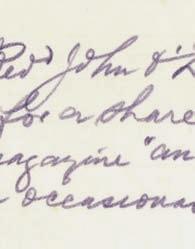 Red) John & D
for a share
magazine "an
occasiona